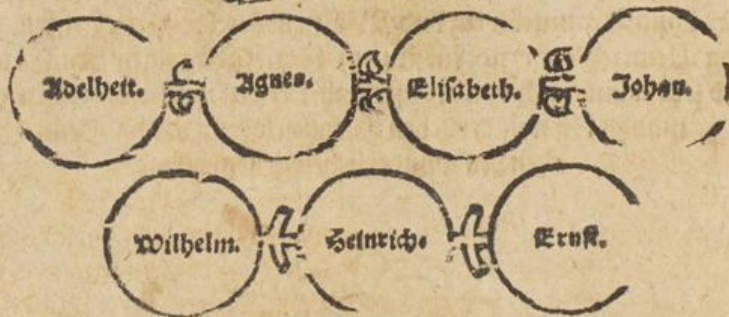 Adelheit. Agnes. Elisabeth. Johan.
Wilhelm. Heinrich. Ernst.